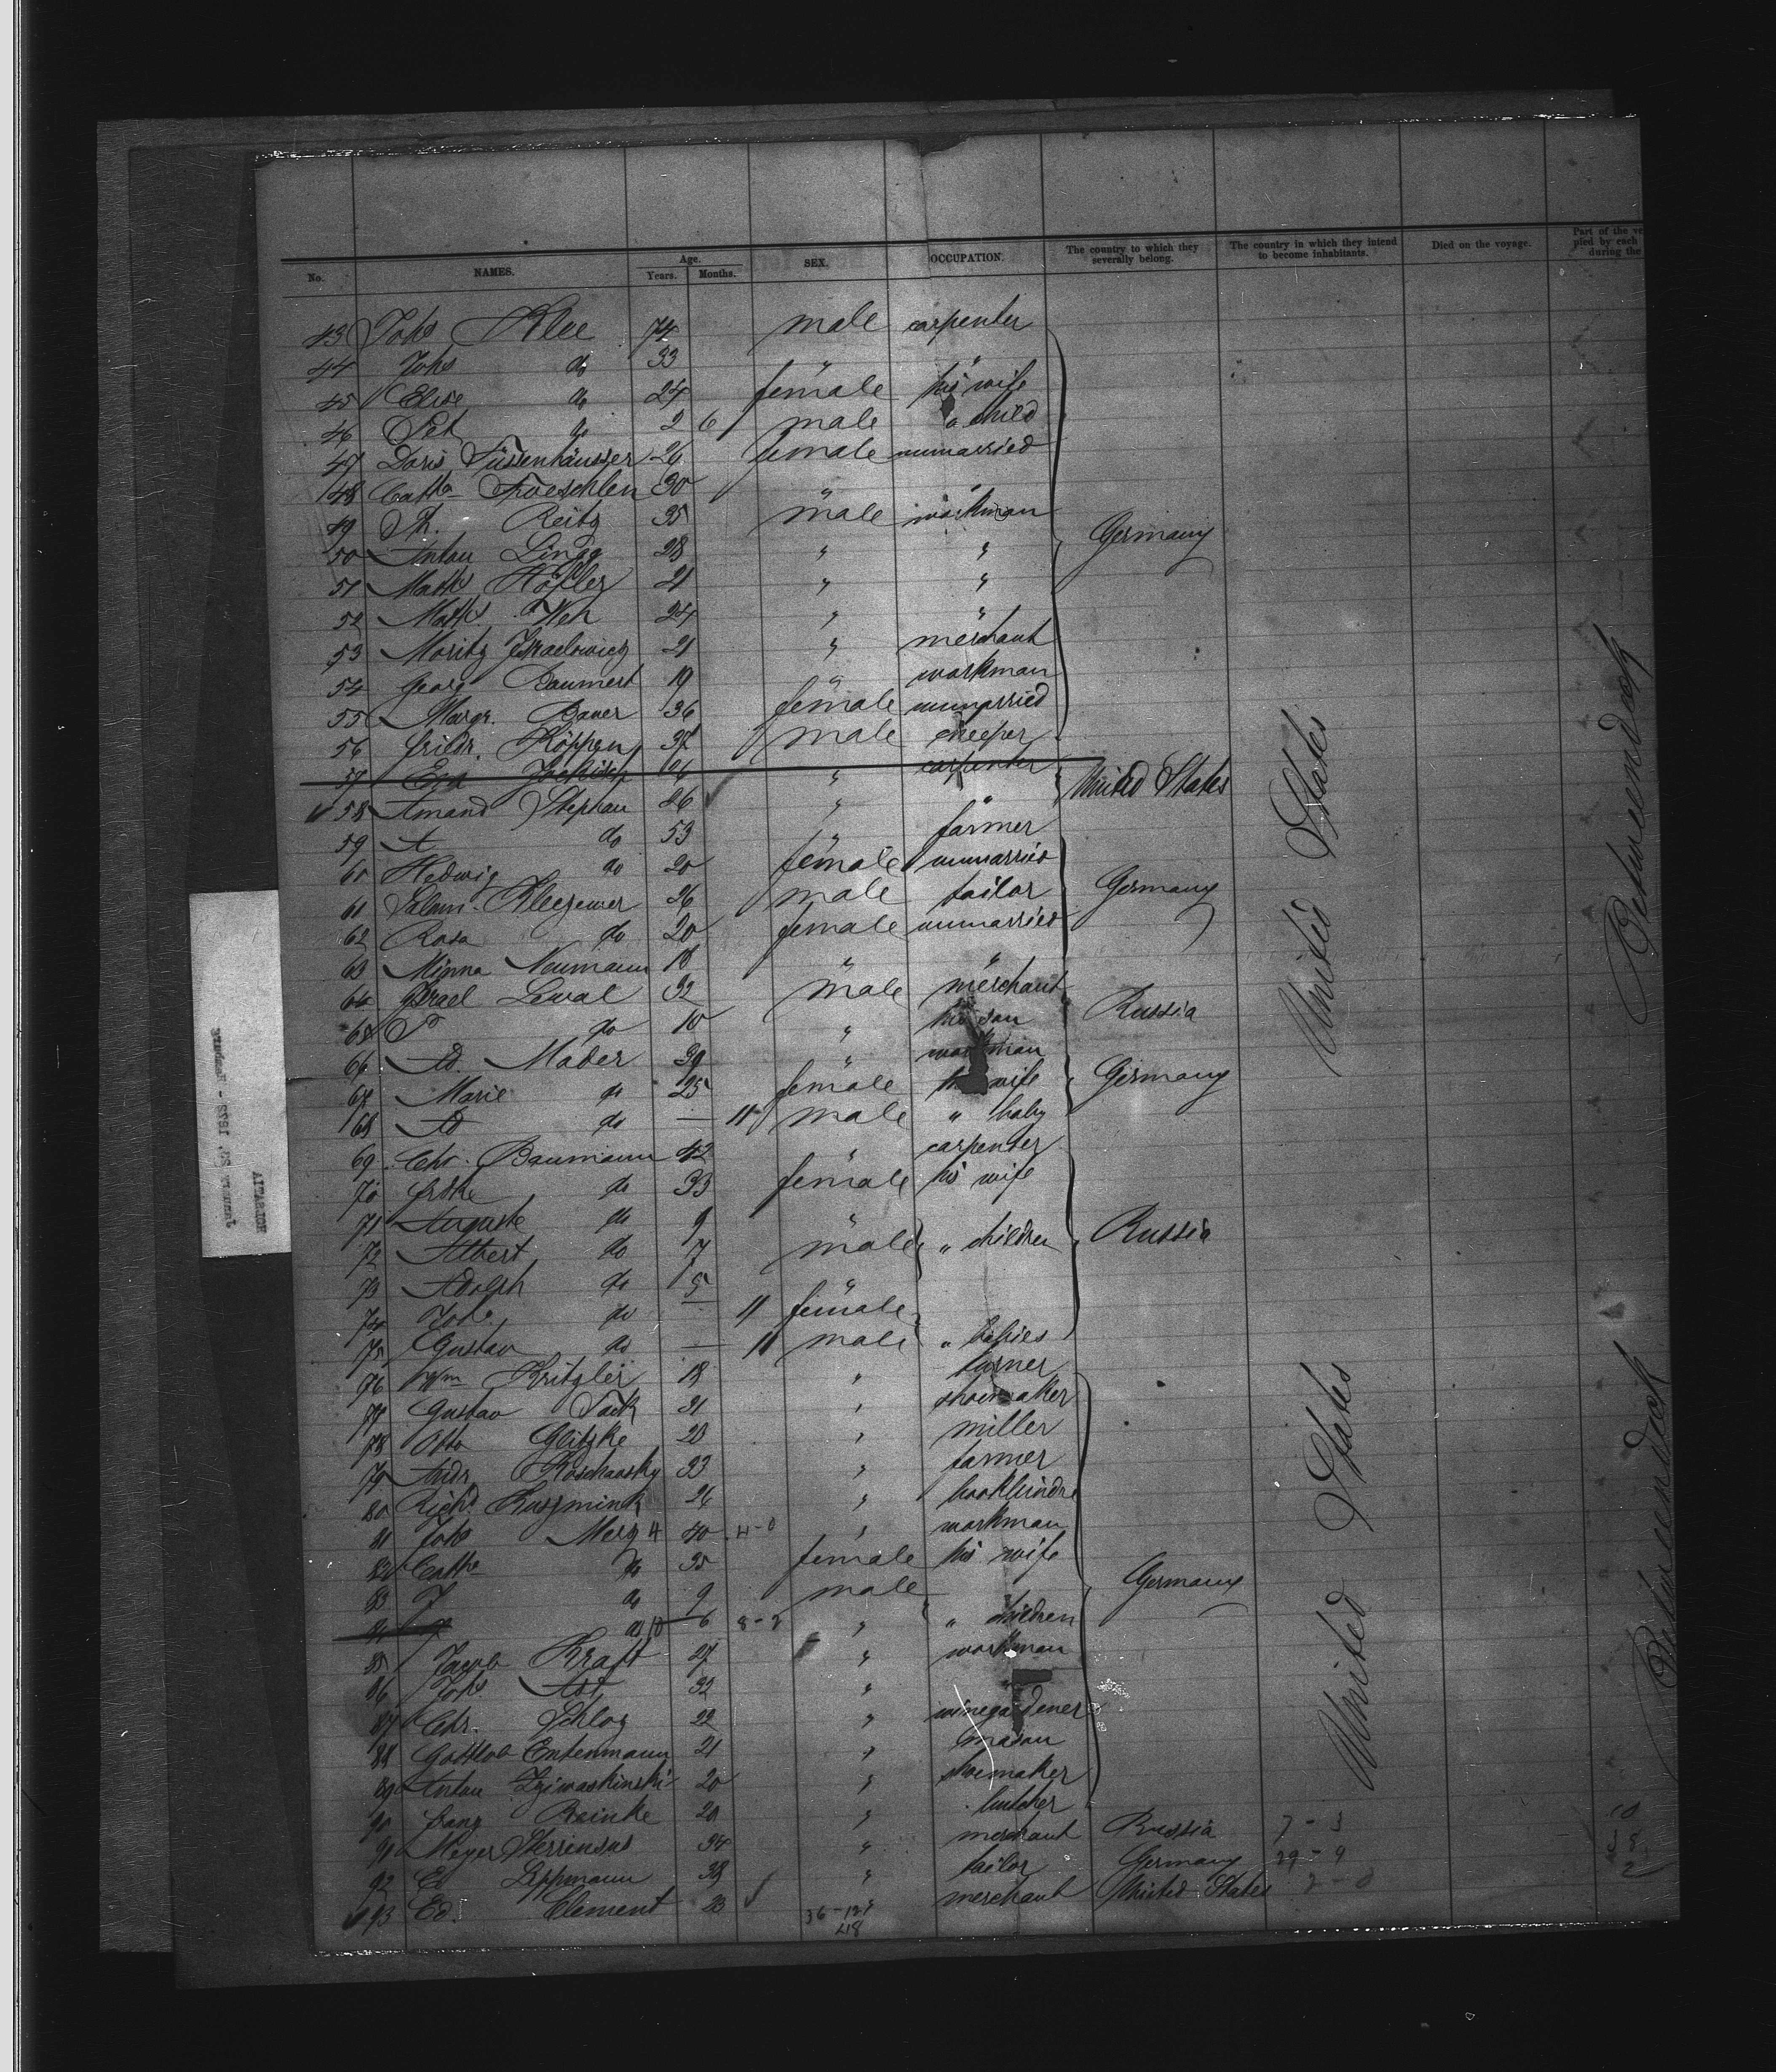 No. NAMES. Age. Years. Months. SEX. OCCUPATION. The country to which they severally belong. The country in which they intend to become inhabitants. Died on the voyage. Part of the ve pied by each during the
43 Johs Klee 74 male carpenter
44 Johs do 33 " "
45 Elise do 24 female his wife
46 Pet do 2 6 male " child
47 Doris Süssenhäusser 24 female unmarried
48 Cathe Froeschlen 30 " "
49 Ph. Reitz 35 male workman
50 Anton Lingg 28 " " Germany
51 Math Höfler 21 " "
52 Math Weh 24 " "
53 Moritz Israelowicz 21 " merchant
54 Georg Baumert 19 " workman
55 Margr. Bauer 36 female unmarried
56 Friedr. Köppen 37 male
57 64 " carpenter
58 Amand Stephan 26 " " United States
59 A do 53 " farmer
60 Hedwig do 20 female unmarried
61 Salom. Kleczewer 26 male tailor Germany
62 Rosa do 20 female unmarried
63 Minna Neumann 18 " "
64 Israel Lewal 32 male merchant Russia
65 do 10 " his son
66 Ad. Mader 39 " workman
67 Marie do 25 female his wife Germany
68 Ad do — 11 male " baby
69 Chr. Baumann 42 " carpenter
70 Frdke do 33 female his wife
71 Auguste do 9 "
72 Albert do 7 male " children Russia
73 Adolph do 5 "
74 Johe do — 11 female
75 Gustav do — 11 male " babies
76 Wm Kritzler 18 " turner
77 Gustav Sack 31 " shoemaker
78 Otto Glitzke 23 " miller
79 Andr. Koschansky 33 " farmer
80 Richd. Kuszmink 26 " bookbinder
81 Johs Merz 4 40 4-0 " workman
82 Cathe do 35 female his wife
83 J do 9 male Germany
84 do 10 6 8-2 " " children
85 Jacob Kraft 27 " workman
86 Johs. Ast 32 " "
87 Chr. Schloz 22 " winegardener
88 Gottlob Entenmann 21 " mason
89 Anton 20 " shoemaker
90 Franz Reinke 20 " butcher
91 Meyer 34 " merchant Russia 7-3
92 Ed Lippmann 38 " tailor Germany 29-9
93 Ed. Clement 23 merchant United States 2-0
United States
United States
Betweendeck
Betweendeck
MORAVIA